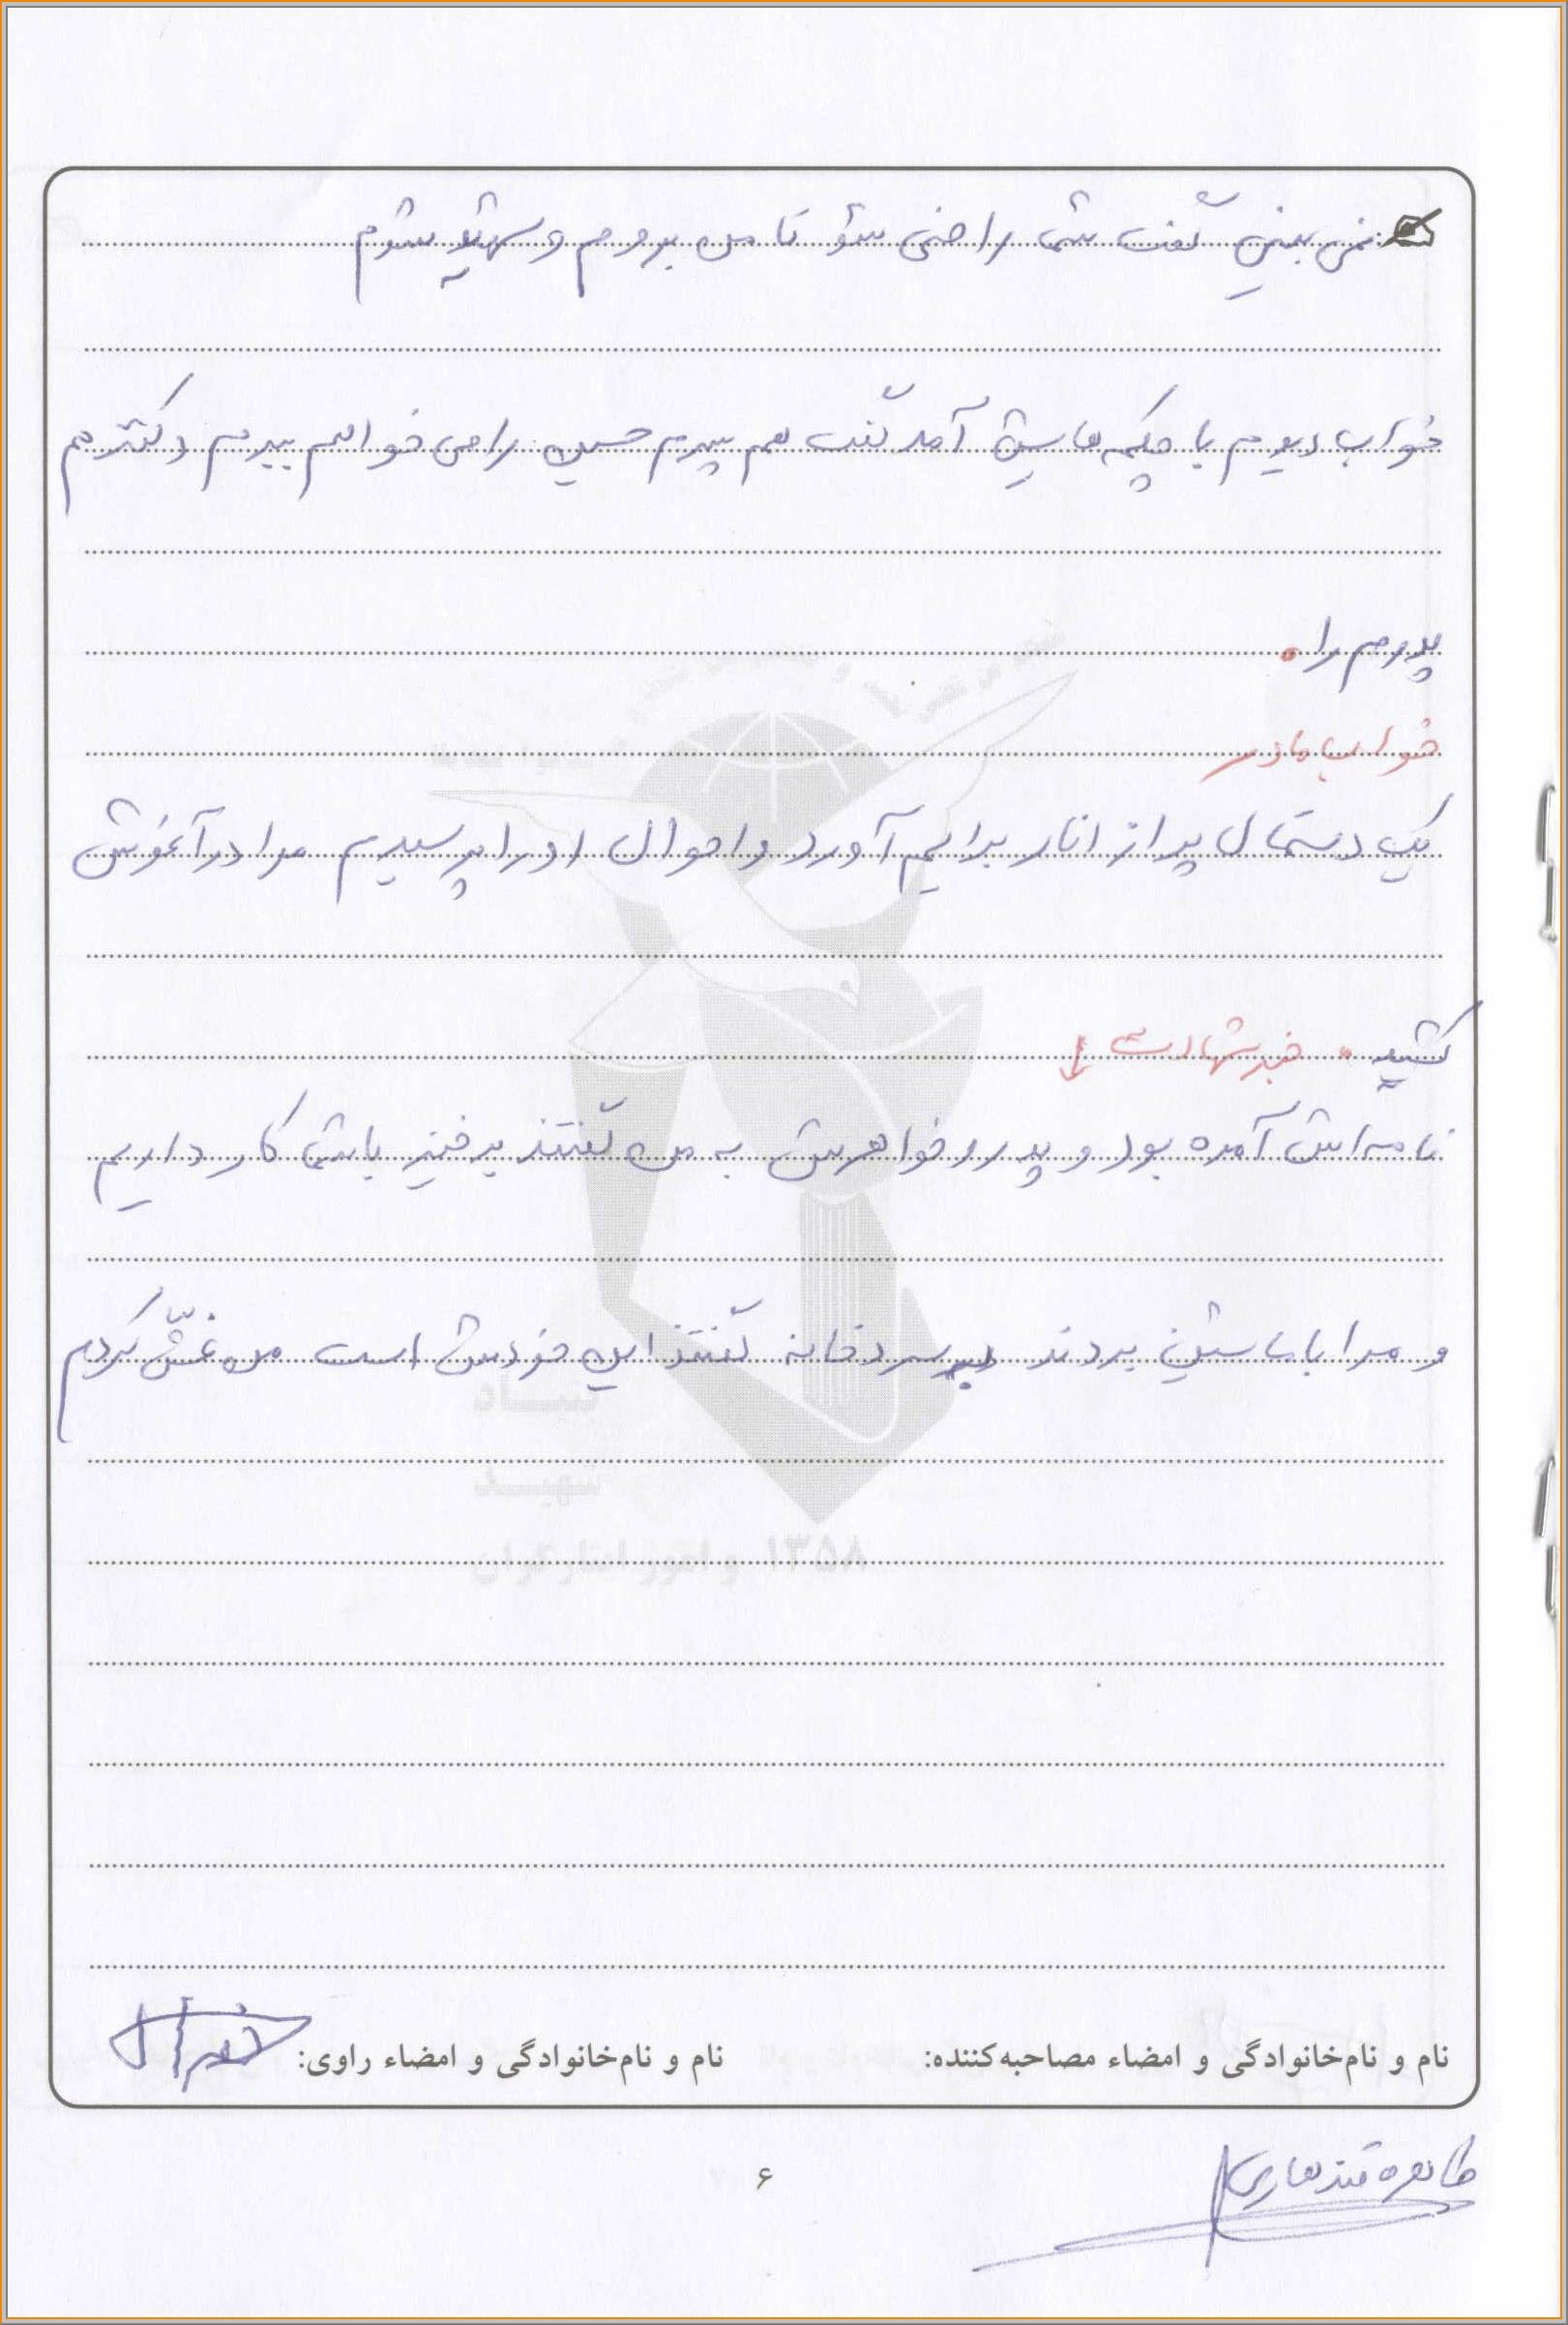 نمی بینی گفت شما راضی شو تا من بروم و شهید شوم
خواب دیدم با چکمه هایش آمد گفت هم پسرم حسین را می خواهم ببرم دکتر هم
پدرم را.
خواب مادر
یک دستمال پر از انار برایم آورد و احوال او را پرسیدم مرا در آغوش
کشید. خبر شهادت ↓
نامه اش آمده بود و پدر و خواهرش به من گفتند برخیز با شما کار داریم
و مرا با ماشین بردند سردخانه گفتند این خودش است من غشّ کردم
بنیاد
شهید
۱۳۵۸ و امور ایثارگران
نام و نام‌خانوادگی و امضاء مصاحبه‌کننده: نام و نام‌خانوادگی و امضاء راوی:
طاهره قندهاری
۶